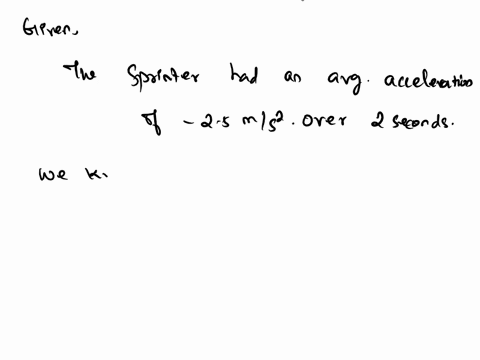 Given,
The Sprinter had an avg. acceleration
of -2.5 m/s². over 2 seconds.
we k